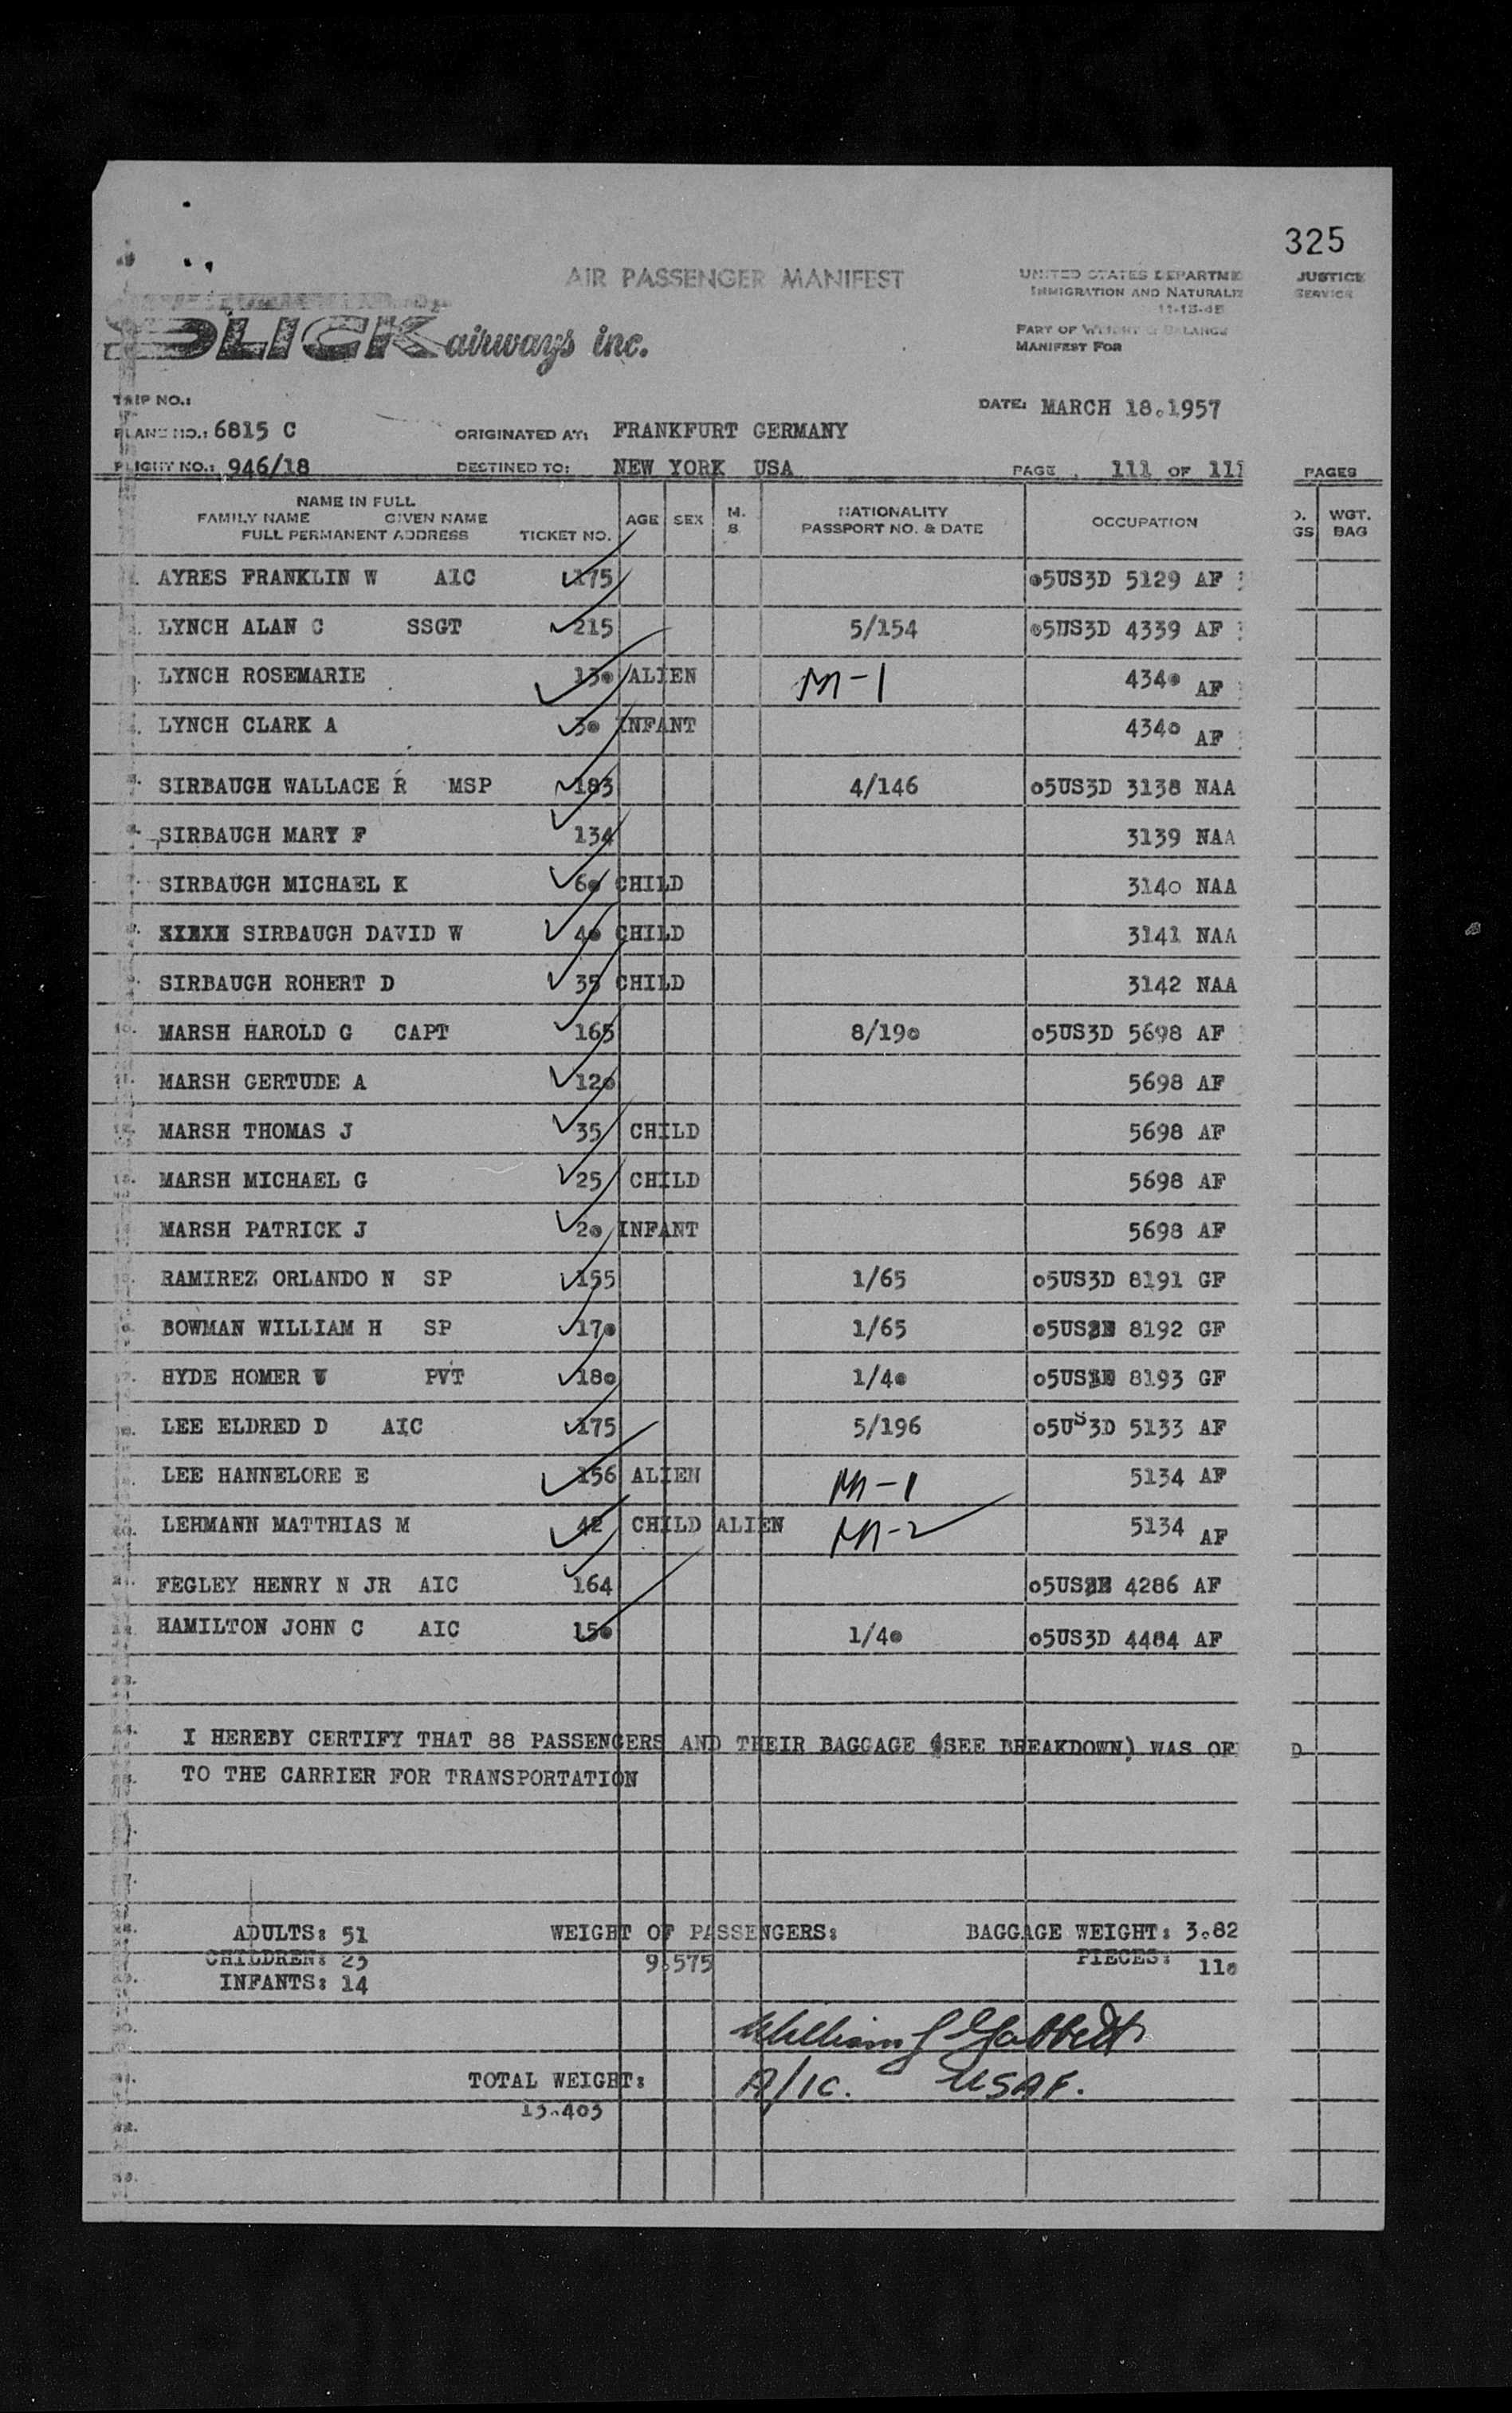 325
AIR PASSENGER MANIFEST
UNITED STATES DEPARTME JUSTICE
IMMIGRATION AND NATURALIZ SERVICE
11-15-48
PART OF WEIGHT & BALANCE
MANIFEST FOR
SLICK airways inc.
TRIP NO.:
DATE: MARCH 18.1957
PLANE NO.: 6815 C ORIGINATED AT: FRANKFURT GERMANY
FLIGHT NO.: 946/18 DESTINED TO: NEW YORK USA PAGE 111 OF 111 PAGES
NAME IN FULL
FAMILY NAME GIVEN NAME
FULL PERMANENT ADDRESS TICKET NO. AGE SEX M. S. NATIONALITY PASSPORT NO. & DATE OCCUPATION O. GS WGT. BAG
AYRES FRANKLIN W AIC 175 05US3D 5129 AF
LYNCH ALAN C SSGT 215 5/154 05US3D 4339 AF
LYNCH ROSEMARIE 130 ALIEN M-1 4340 AF
LYNCH CLARK A 30 INFANT 4340 AF
SIRBAUGH WALLACE R MSP 183 4/146 05US3D 3138 NAA
SIRBAUGH MARY F 134 3139 NAA
7. SIRBAUGH MICHAEL K 60 CHILD 3140 NAA
SIRBAUGH DAVID W 40 CHILD 3141 NAA
SIRBAUGH ROHERT D 35 CHILD 3142 NAA
10. MARSH HAROLD G CAPT 165 8/190 05US3D 5698 AF
11. MARSH GERTUDE A 120 5698 AF
MARSH THOMAS J 35 CHILD 5698 AF
MARSH MICHAEL G 25 CHILD 5698 AF
MARSH PATRICK J 20 INFANT 5698 AF
RAMIREZ ORLANDO N SP 155 1/65 05US3D 8191 GF
BOWMAN WILLIAM H SP 170 1/65 05US 8192 GF
HYDE HOMER W PVT 180 1/40 05US 8193 GF
LEE ELDRED D AIC 175 5/196 05US3D 5133 AF
LEE HANNELORE E 156 ALIEN M-1 5134 AF
LEHMANN MATTHIAS M 42 CHILD ALIEN M-2 5134 AF
21. FEGLEY HENRY N JR AIC 164 05US 4286 AF
HAMILTON JOHN C AIC 150 1/40 05US3D 4484 AF
I HEREBY CERTIFY THAT 88 PASSENGERS AND THEIR BAGGAGE (SEE BREAKDOWN) WAS OF D
TO THE CARRIER FOR TRANSPORTATION
ADULTS: 51 WEIGHT OF PASSENGERS: BAGGAGE WEIGHT: 3.82
CHILDREN: 23 9.575 PIECES: 110
INFANTS: 14
William G Gabbett
TOTAL WEIGHT: A/1C. USAF.
13.403